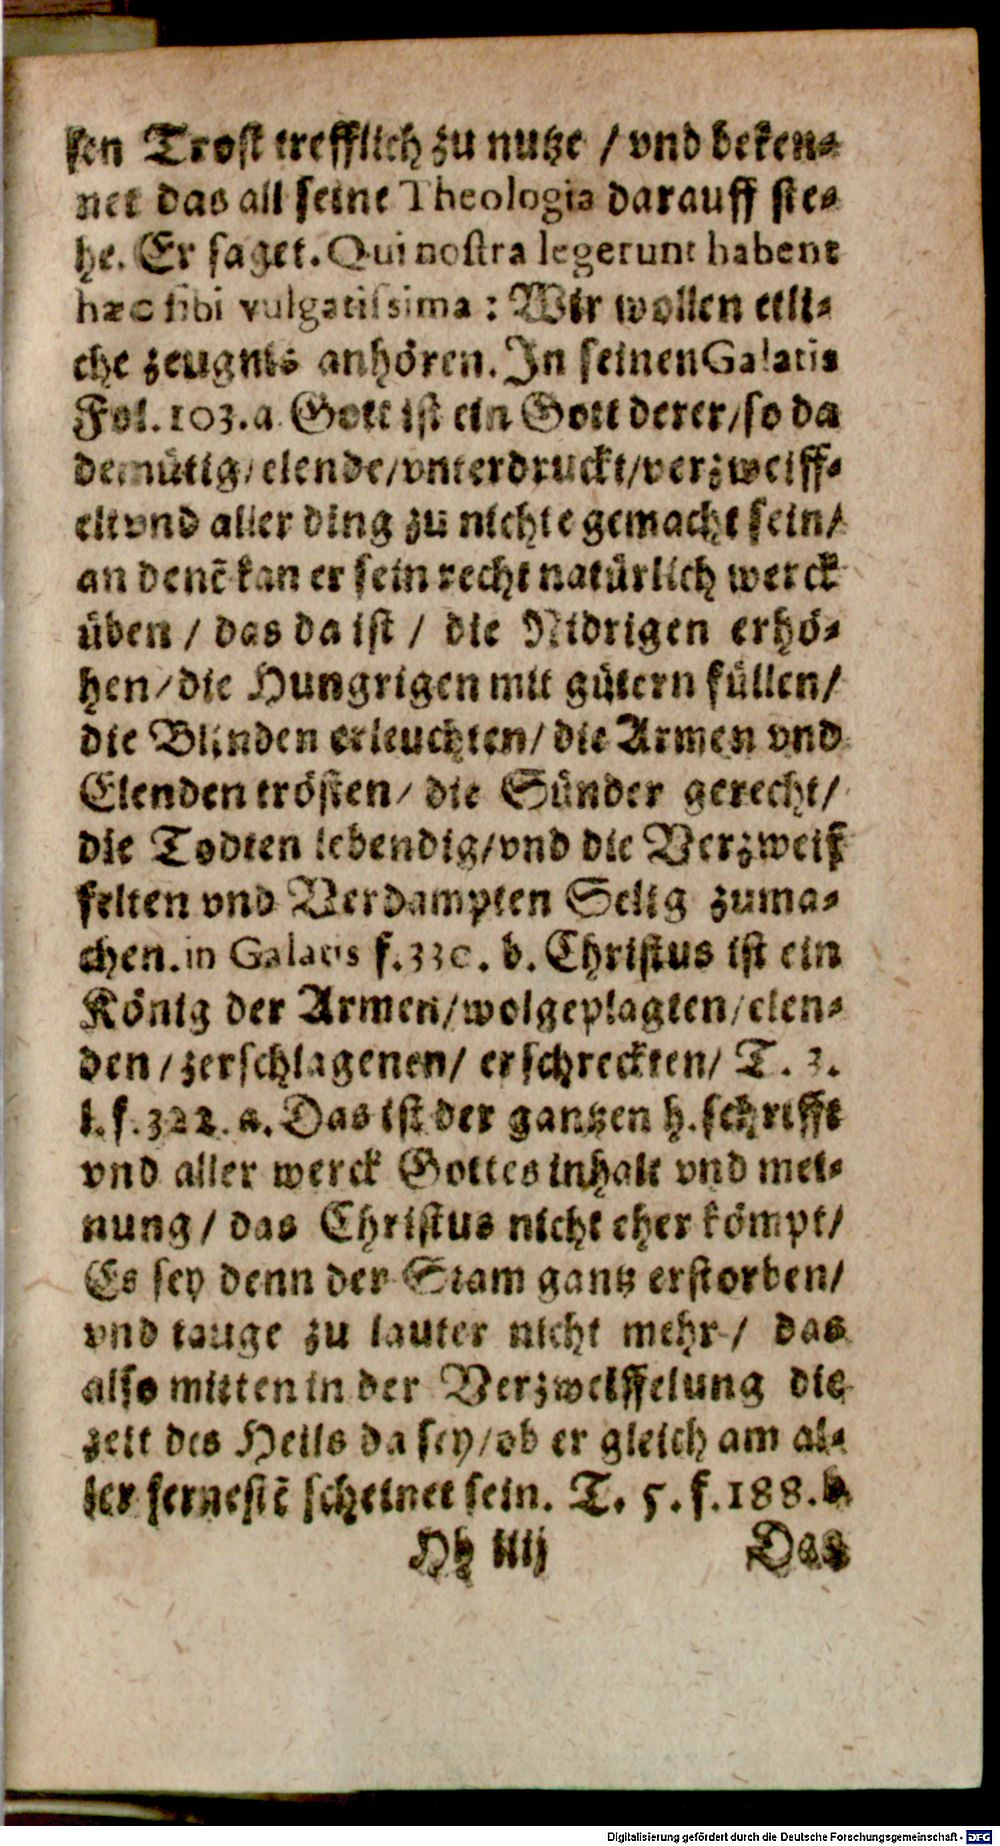 sen Trost trefflich zu nutze / vnd beken-
net das all seine Theologia darauff ste-
he. Er saget. Qui nostra legerunt habent
hæc sibi vulgatissima : Wir wollen etli-
che zeugnis anhören. In seinen Galatis
Fol. 103. a. Gott ist ein Gott derer / so da
demütig / elende / vnterdruckt / verzweiff-
elt vnd aller ding zu nichte gemacht sein /
an denē kan er sein recht natürlich werck
üben / das da ist / die Nidrigen erhö-
hen / die Hungrigen mit gütern füllen /
die Blinden erleuchten / die Armen vnd
Elenden trösten / die Sünder gerecht /
die Todten lebendig / vnd die Verzweif
felten vnd Verdampten Selig zuma-
chen. in Galatis f. 330. b. Christus ist ein
König der Armen / wolgeplagten / elen-
den / zerschlagenen / erschreckten / T. 3.
l. f. 322. a. Das ist der gantzen h. schrifft
vnd aller werck Gottes inhalt vnd mei-
nung / das Christus nicht eher kömpt /
Es sey denn der Stam gantz erstorben /
vnd tauge zu lauter nicht mehr / das
also mitten in der Verzweiffelung die
zeit des Heils da sey / ob er gleich am al-
ler fernestē scheinet sein. T. 5. f. 188. b.
Hh iiij Das
Digitalisierung gefördert durch die Deutsche Forschungsgemeinschaft - DFG